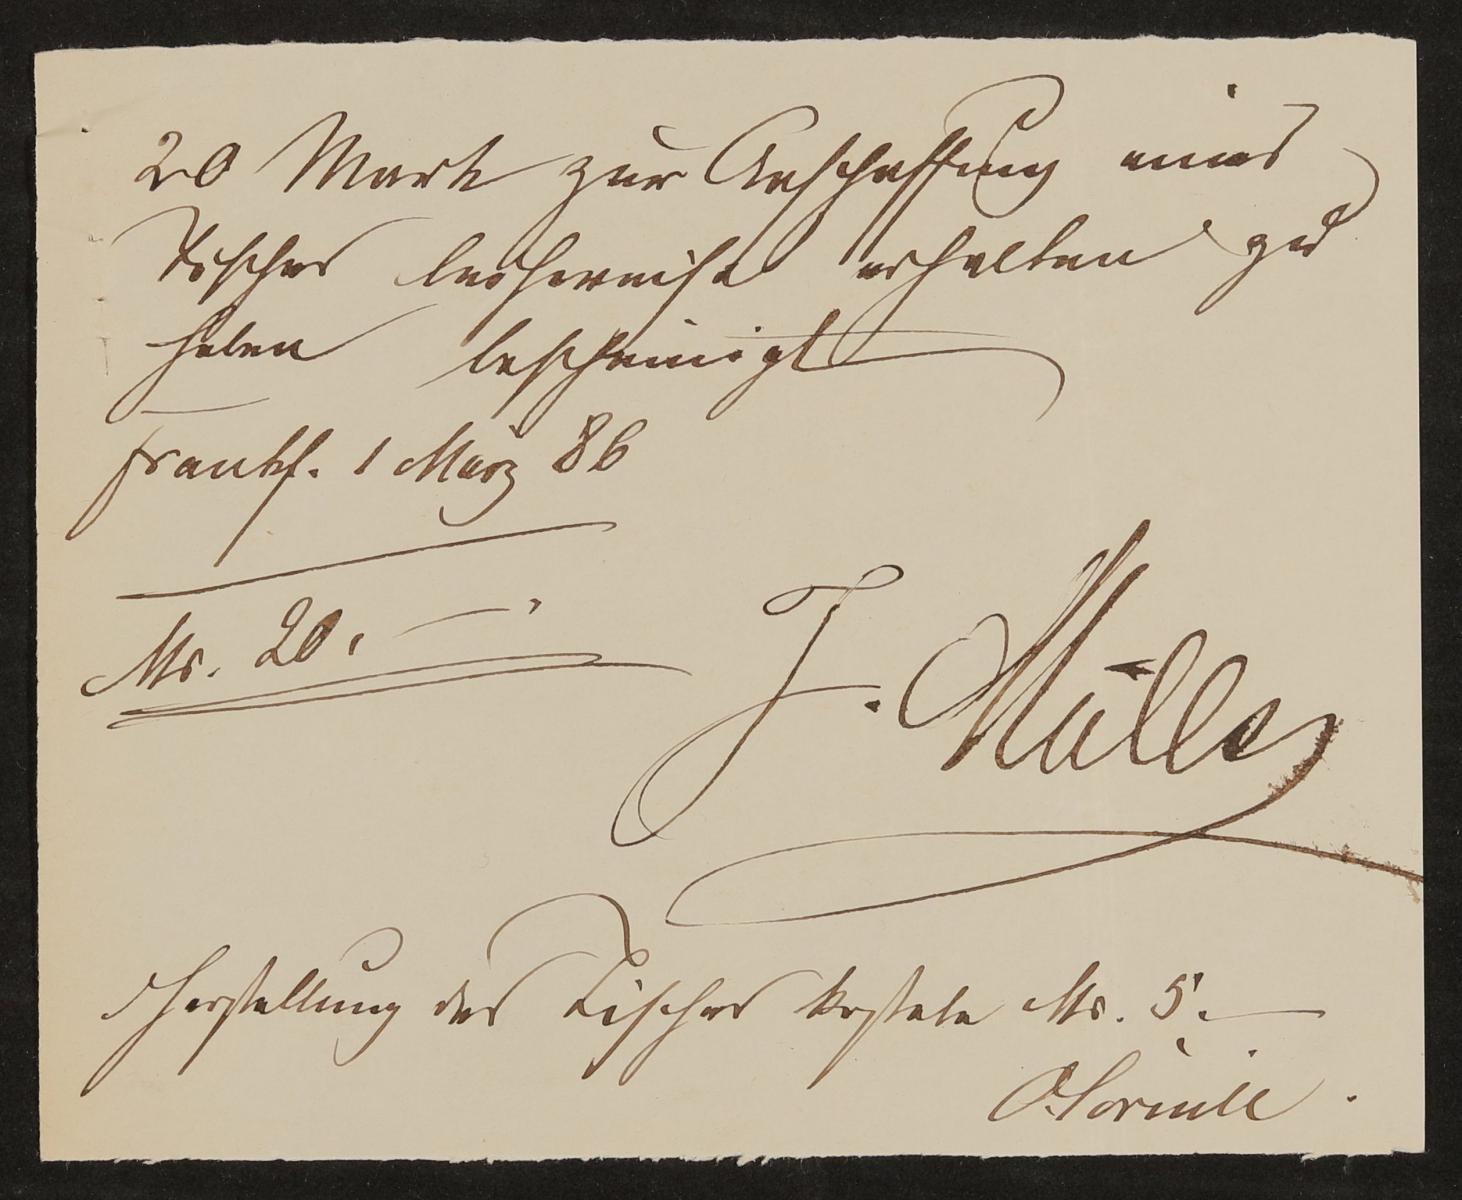 20 Mark zur Anschaffung eines
Tisches leihweise erhalten zu
haben bescheinigt
Frankf. 1 März 86
Mk. 20. —
J. Müller
Herstellung des Tisches kostete Mk. 5. —
O. Cornill.